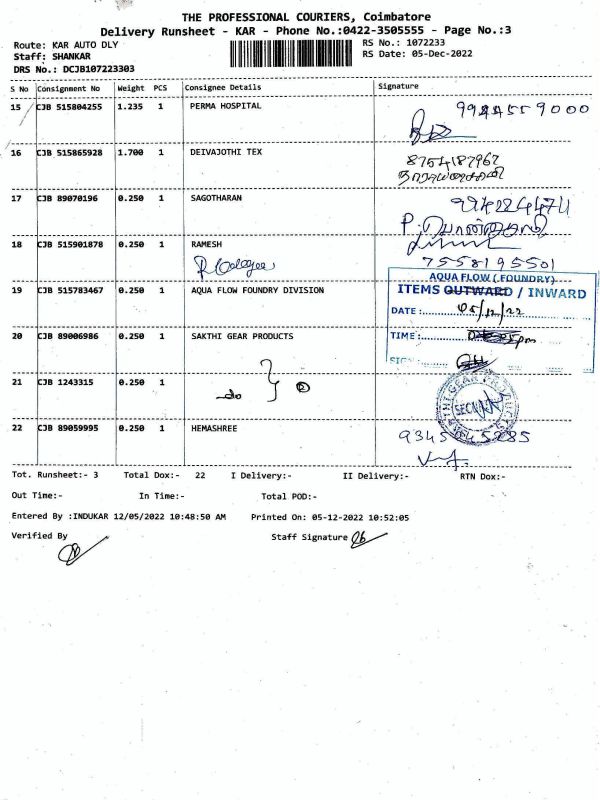 THE PROFESSIONAL COURIERS, Coimbatore
Delivery Runsheet - KAR - Phone No.:0422-3505555 - Page No.:3
Route: KAR AUTO DLY
RS No.: 1072233
Staff: SHANKAR
RS Date: 05-Dec-2022
DRS No.: DCJB107223303
S No Consignment No Weight PCS Consignee Details Signature
15 CJB 515804255 1.235 1 PERMA HOSPITAL
16 CJB 515865928 1.700 1 DEIVAJOTHI TEX 8754187967
17 CJB 89070196 0.250 1 SAGOTHARAN
18 CJB 515901878 0.250 1 RAMESH
7558195501
19 CJB 515783467 0.250 1 AQUA FLOW FOUNDRY DIVISION
AQUA FLOW (FOUNDRY)
ITEMS OUTWARD / INWARD
DATE : 05/12/22
20 CJB 89006986 0.250 1 SAKTHI GEAR PRODUCTS
TIME : pm
SIGN
21 CJB 1243315 0.250 1 do
SECURITY
22 CJB 89059995 0.250 1 HEMASHREE
Tot. Runsheet:- 3 Total Dox:- 22 I Delivery:- II Delivery:- RTN Dox:-
Out Time:- In Time:- Total POD:-
Entered By :INDUKAR 12/05/2022 10:48:50 AM Printed On: 05-12-2022 10:52:05
Verified By Staff Signature